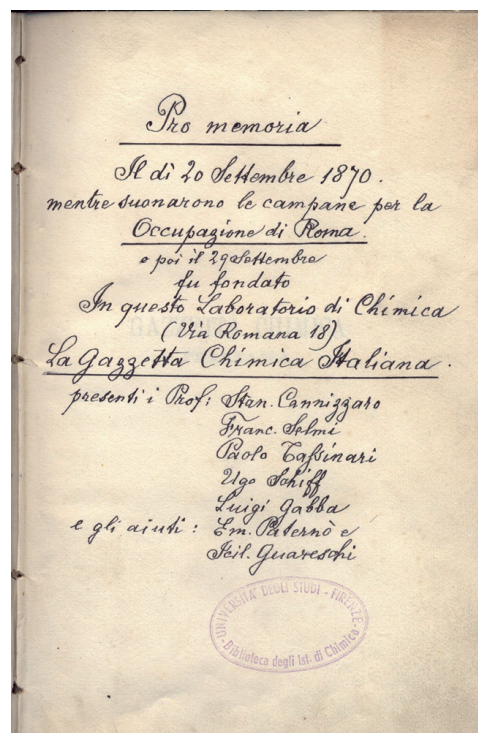 Pro memoria
Il dì 20 Settembre 1870.
mentre suonarono le campane per la
Occupazione di Roma.
e poi il 29 Settembre
fu fondato
In questo Laboratorio di Chimica
(Via Romana 18)
La Gazzetta Chimica Italiana.
presenti i Prof: Stan. Cannizzaro
Franc. Selmi
Paolo Tassinari
Ugo Schiff
Luigi Gabba
e gli aiuti: Em. Paternò e
Icil. Guareschi
UNIVERSITA' DEGLI STUDI - FIRENZE
Biblioteca degli Ist. di Chimica